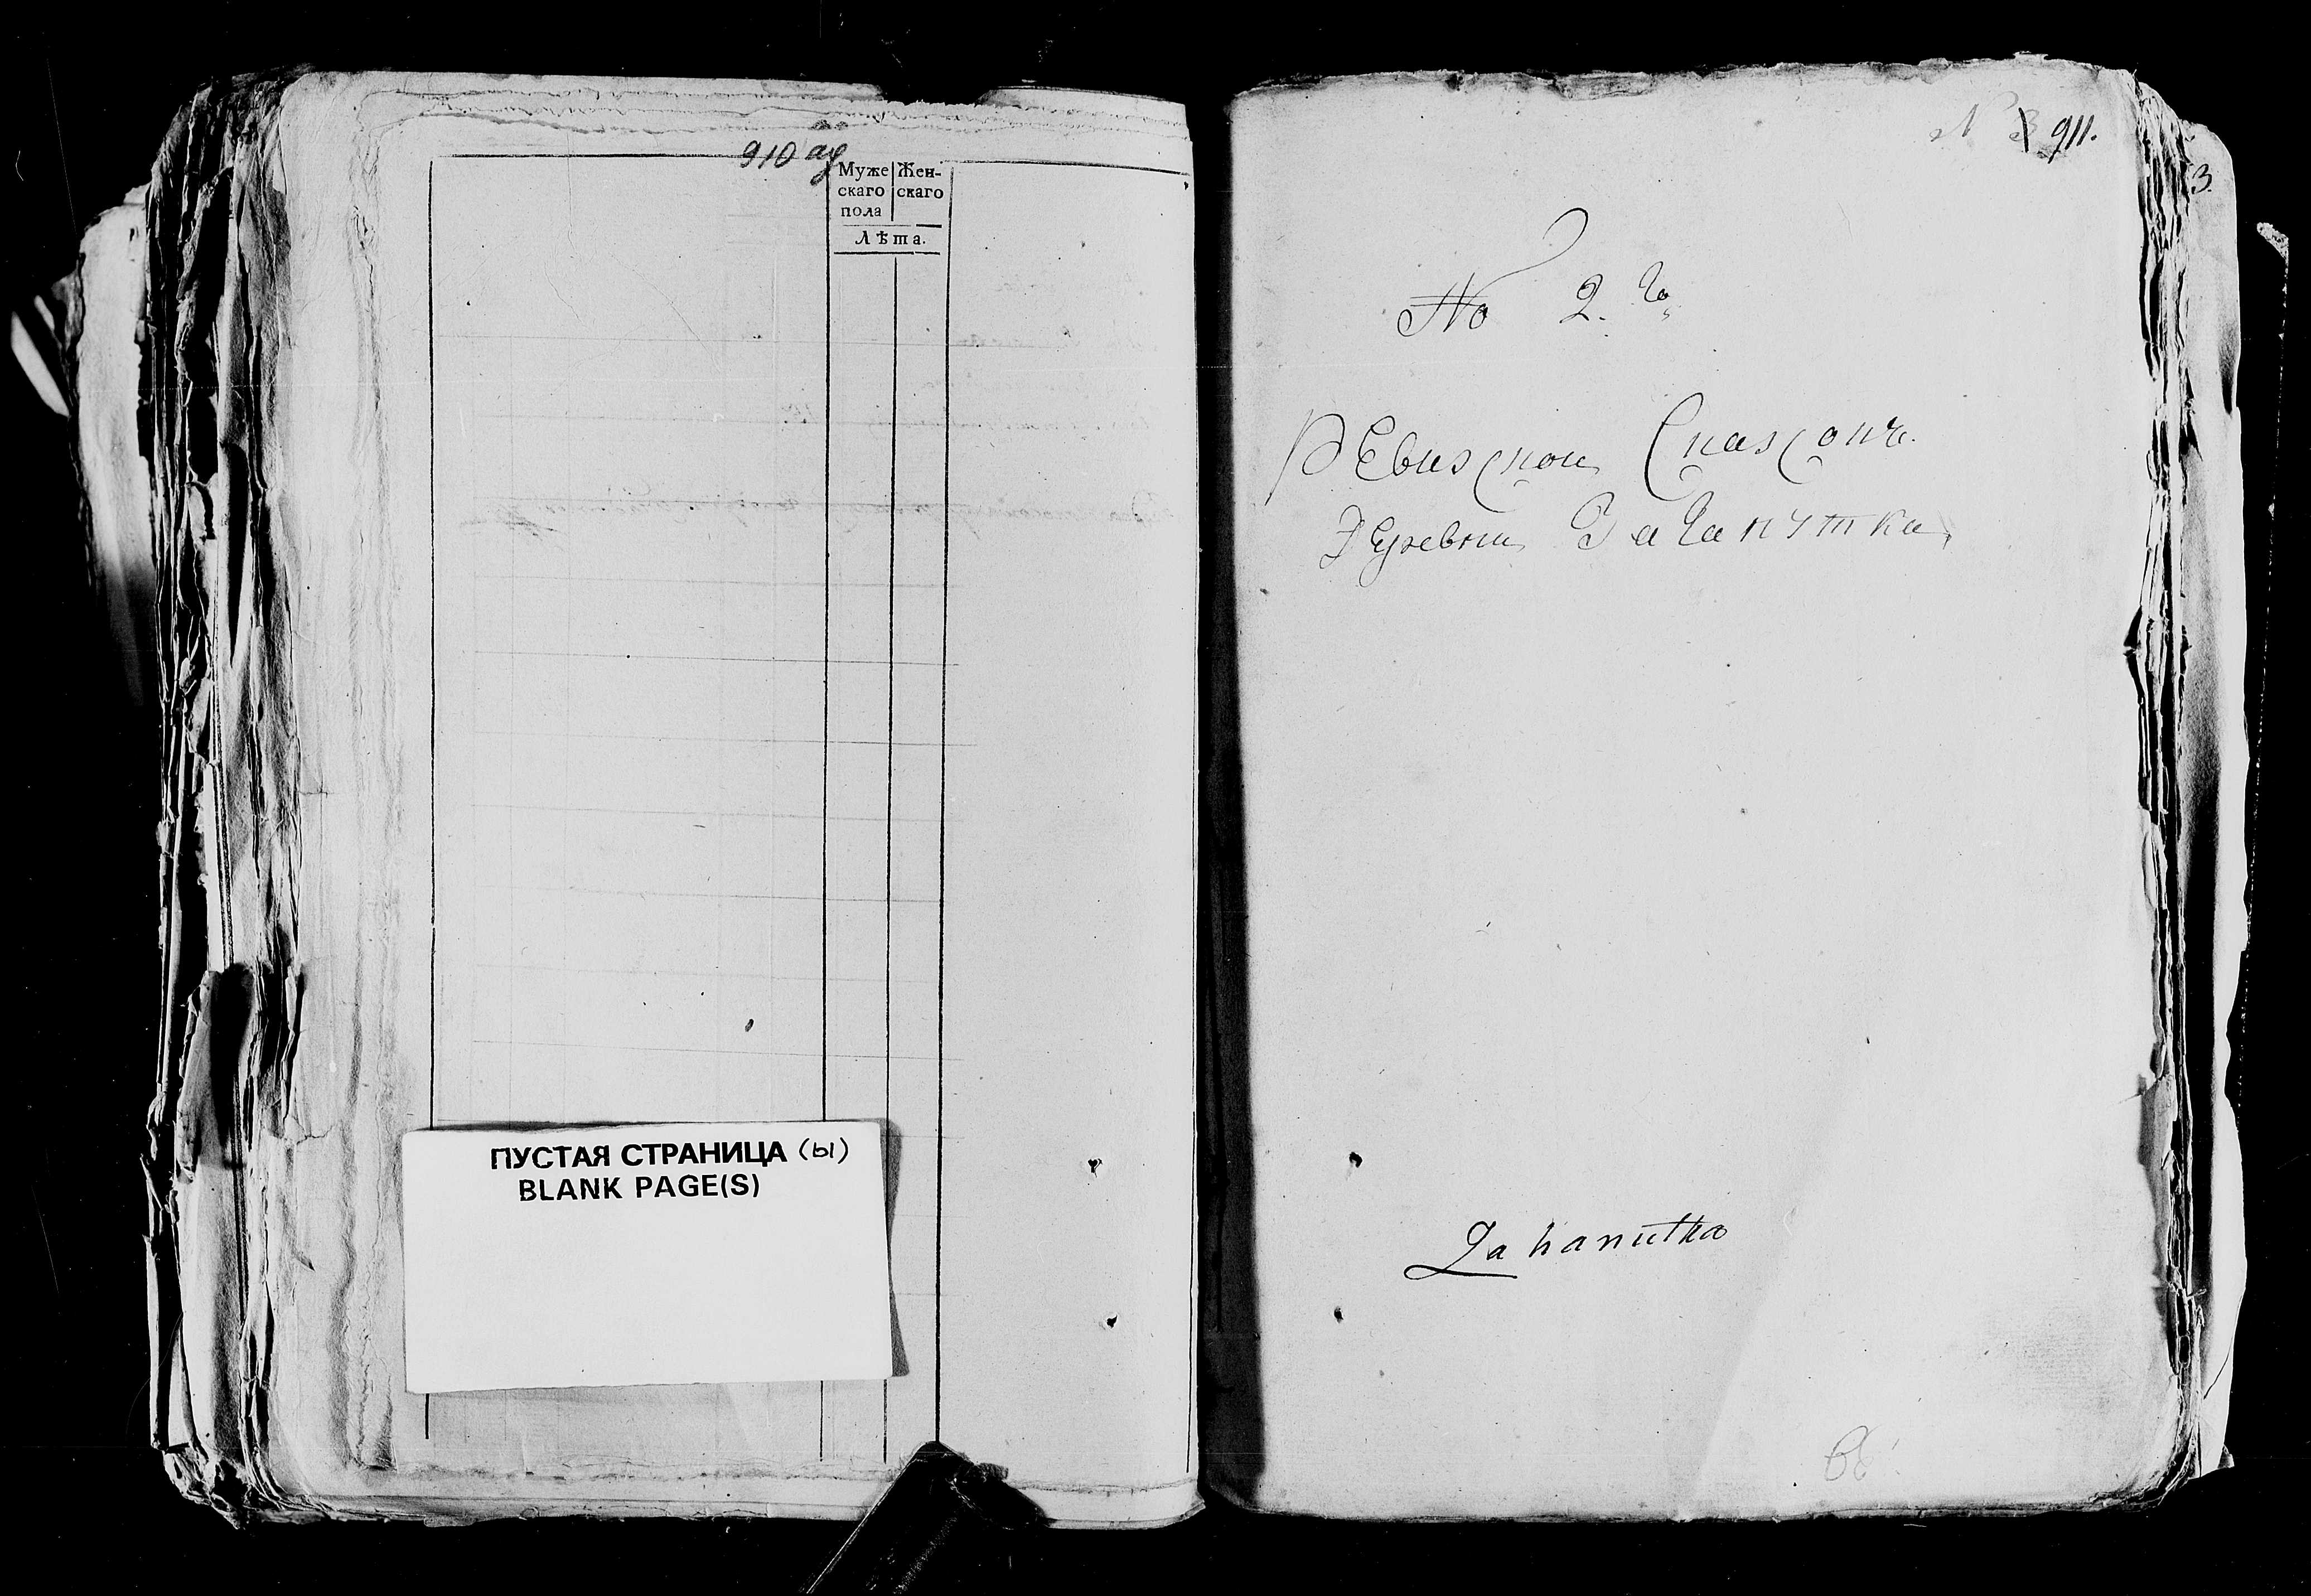 910 об
Муже Жен-
скаго скаго
пола
Лѣта.
ПУСТАЯ СТРАНИЦА (ы)
BLANK PAGE(S)
911.
3.
No 2.го
Ревизской Сказской
Деревни Загапутка
Zahanutka